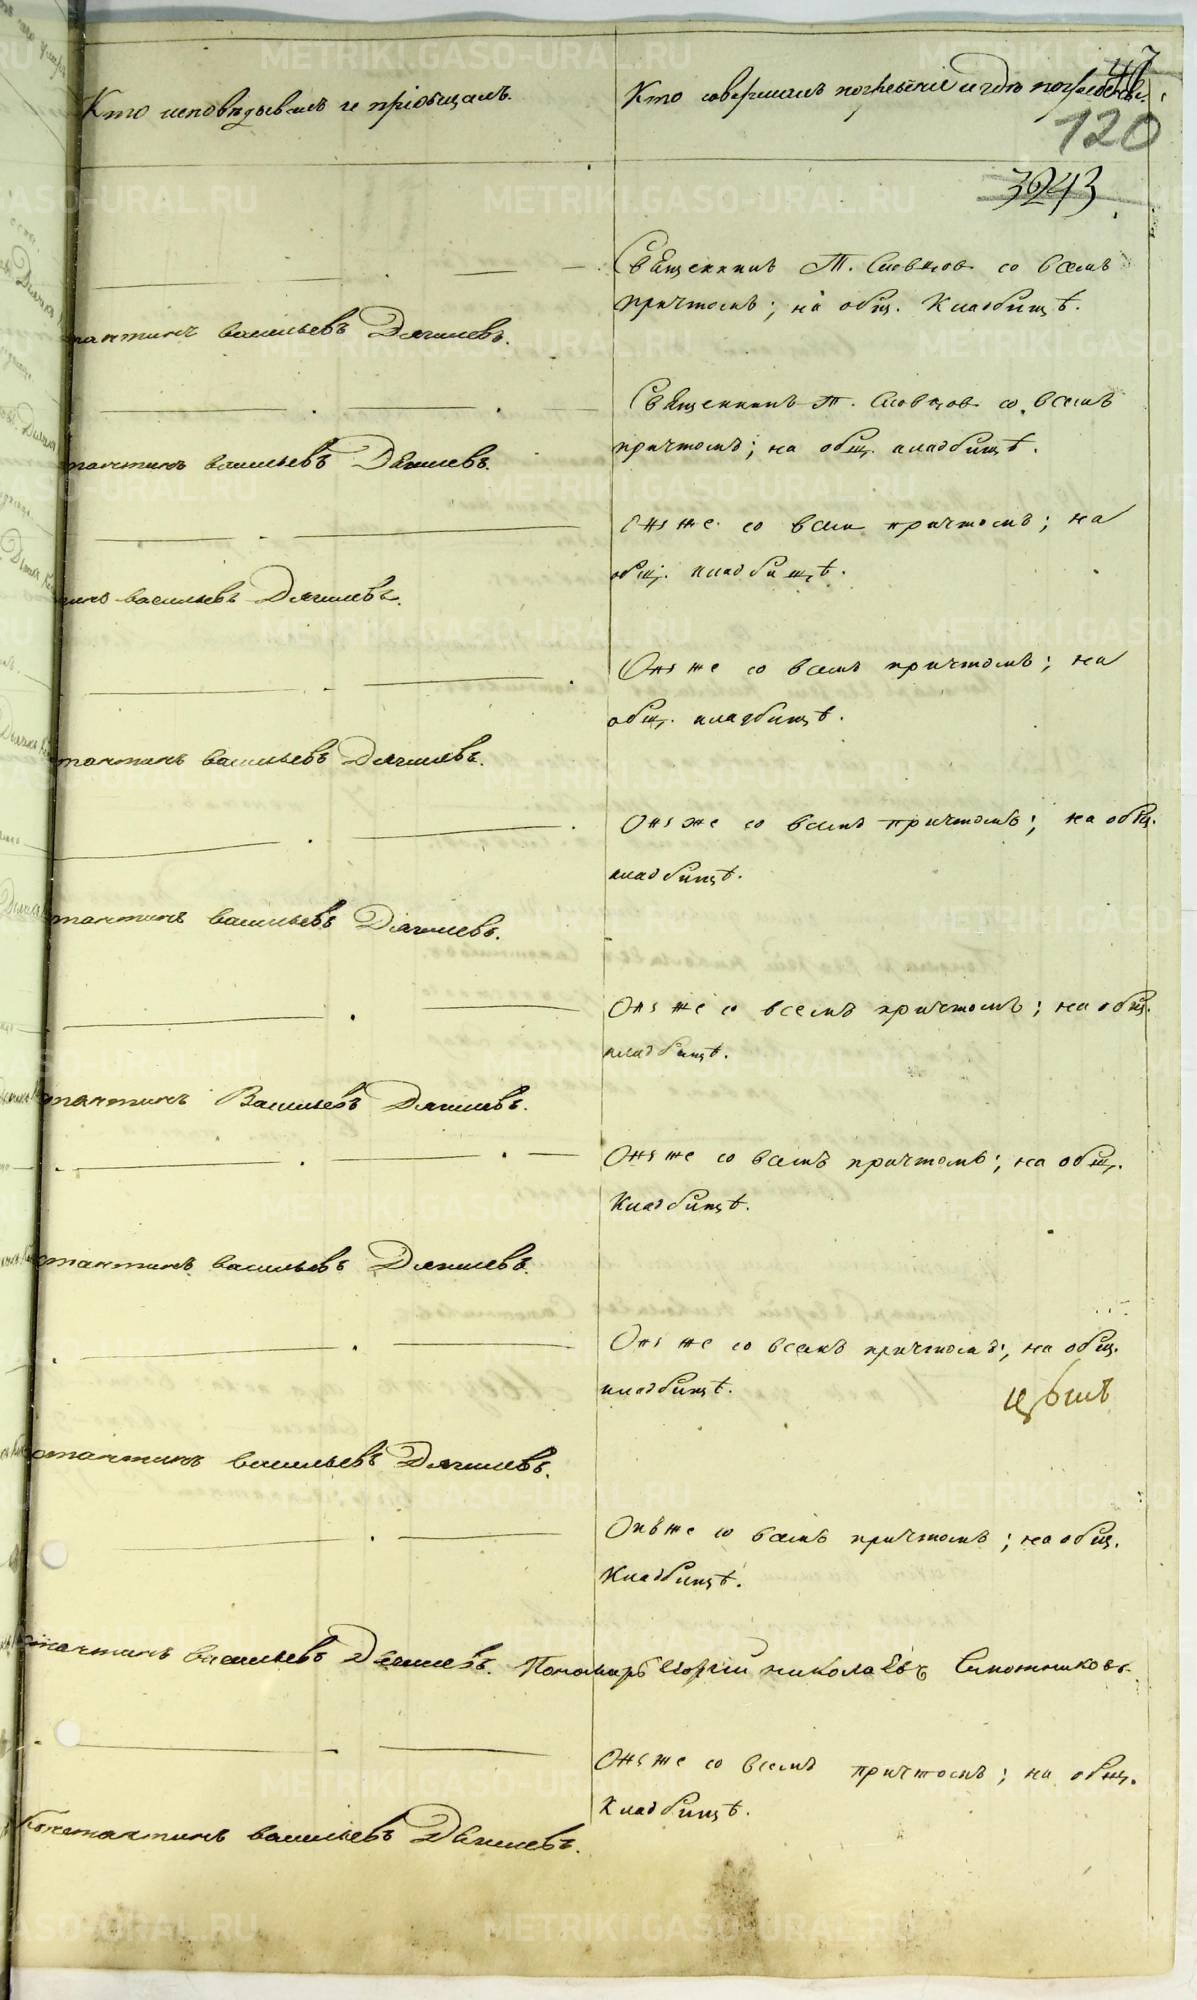 Кто исповѣдывалъ и пріобщалъ.
Кто совершалъ погребеніе и гдѣ погребены.
120
3243
Священникъ Т. Словцов со всемъ
причтомъ; на общ. Кладбищѣ.
тантинъ васильевъ Дягилевъ.
Священникъ Т. Словцов со всемъ
причтомъ; на общ. кладбищѣ.
тантинъ васильевъ Дягилевъ.
Онъ же со всем причтомъ; на
общ. кладбищѣ.
тинъ васильевъ Дягилевъ.
Онъ же со всемъ причтомъ; на
общ. кладбищѣ.
тантинъ васильевъ Дягилевъ.
Онъ же со всемъ причтомъ; на общ.
кладбищѣ.
тантинъ васильевъ Дягилевъ.
Онъ же со всемъ причтомъ; на общ.
кладбищѣ.
тантинъ Васильевъ Дягилевъ.
Онъ же со всемъ причтомъ; на общ.
Кладбищѣ.
тантинъ васильевъ Дягилевъ.
Онъ же со всемъ причтомъ; на общ.
кладбищѣ.
стантинъ васильевъ Дягилевъ.
Онъ же со всемъ причтомъ; на общ.
Кладбищѣ.
стантинъ васильевъ Дягилевъ. Пономарь Георгій николаевъ Сапожниковъ.
Онъ же со всемъ причтомъ; на общ.
Кладбищѣ.
Константинъ васильевъ Дягилевъ.
METRIKI.GASO-URAL.RU